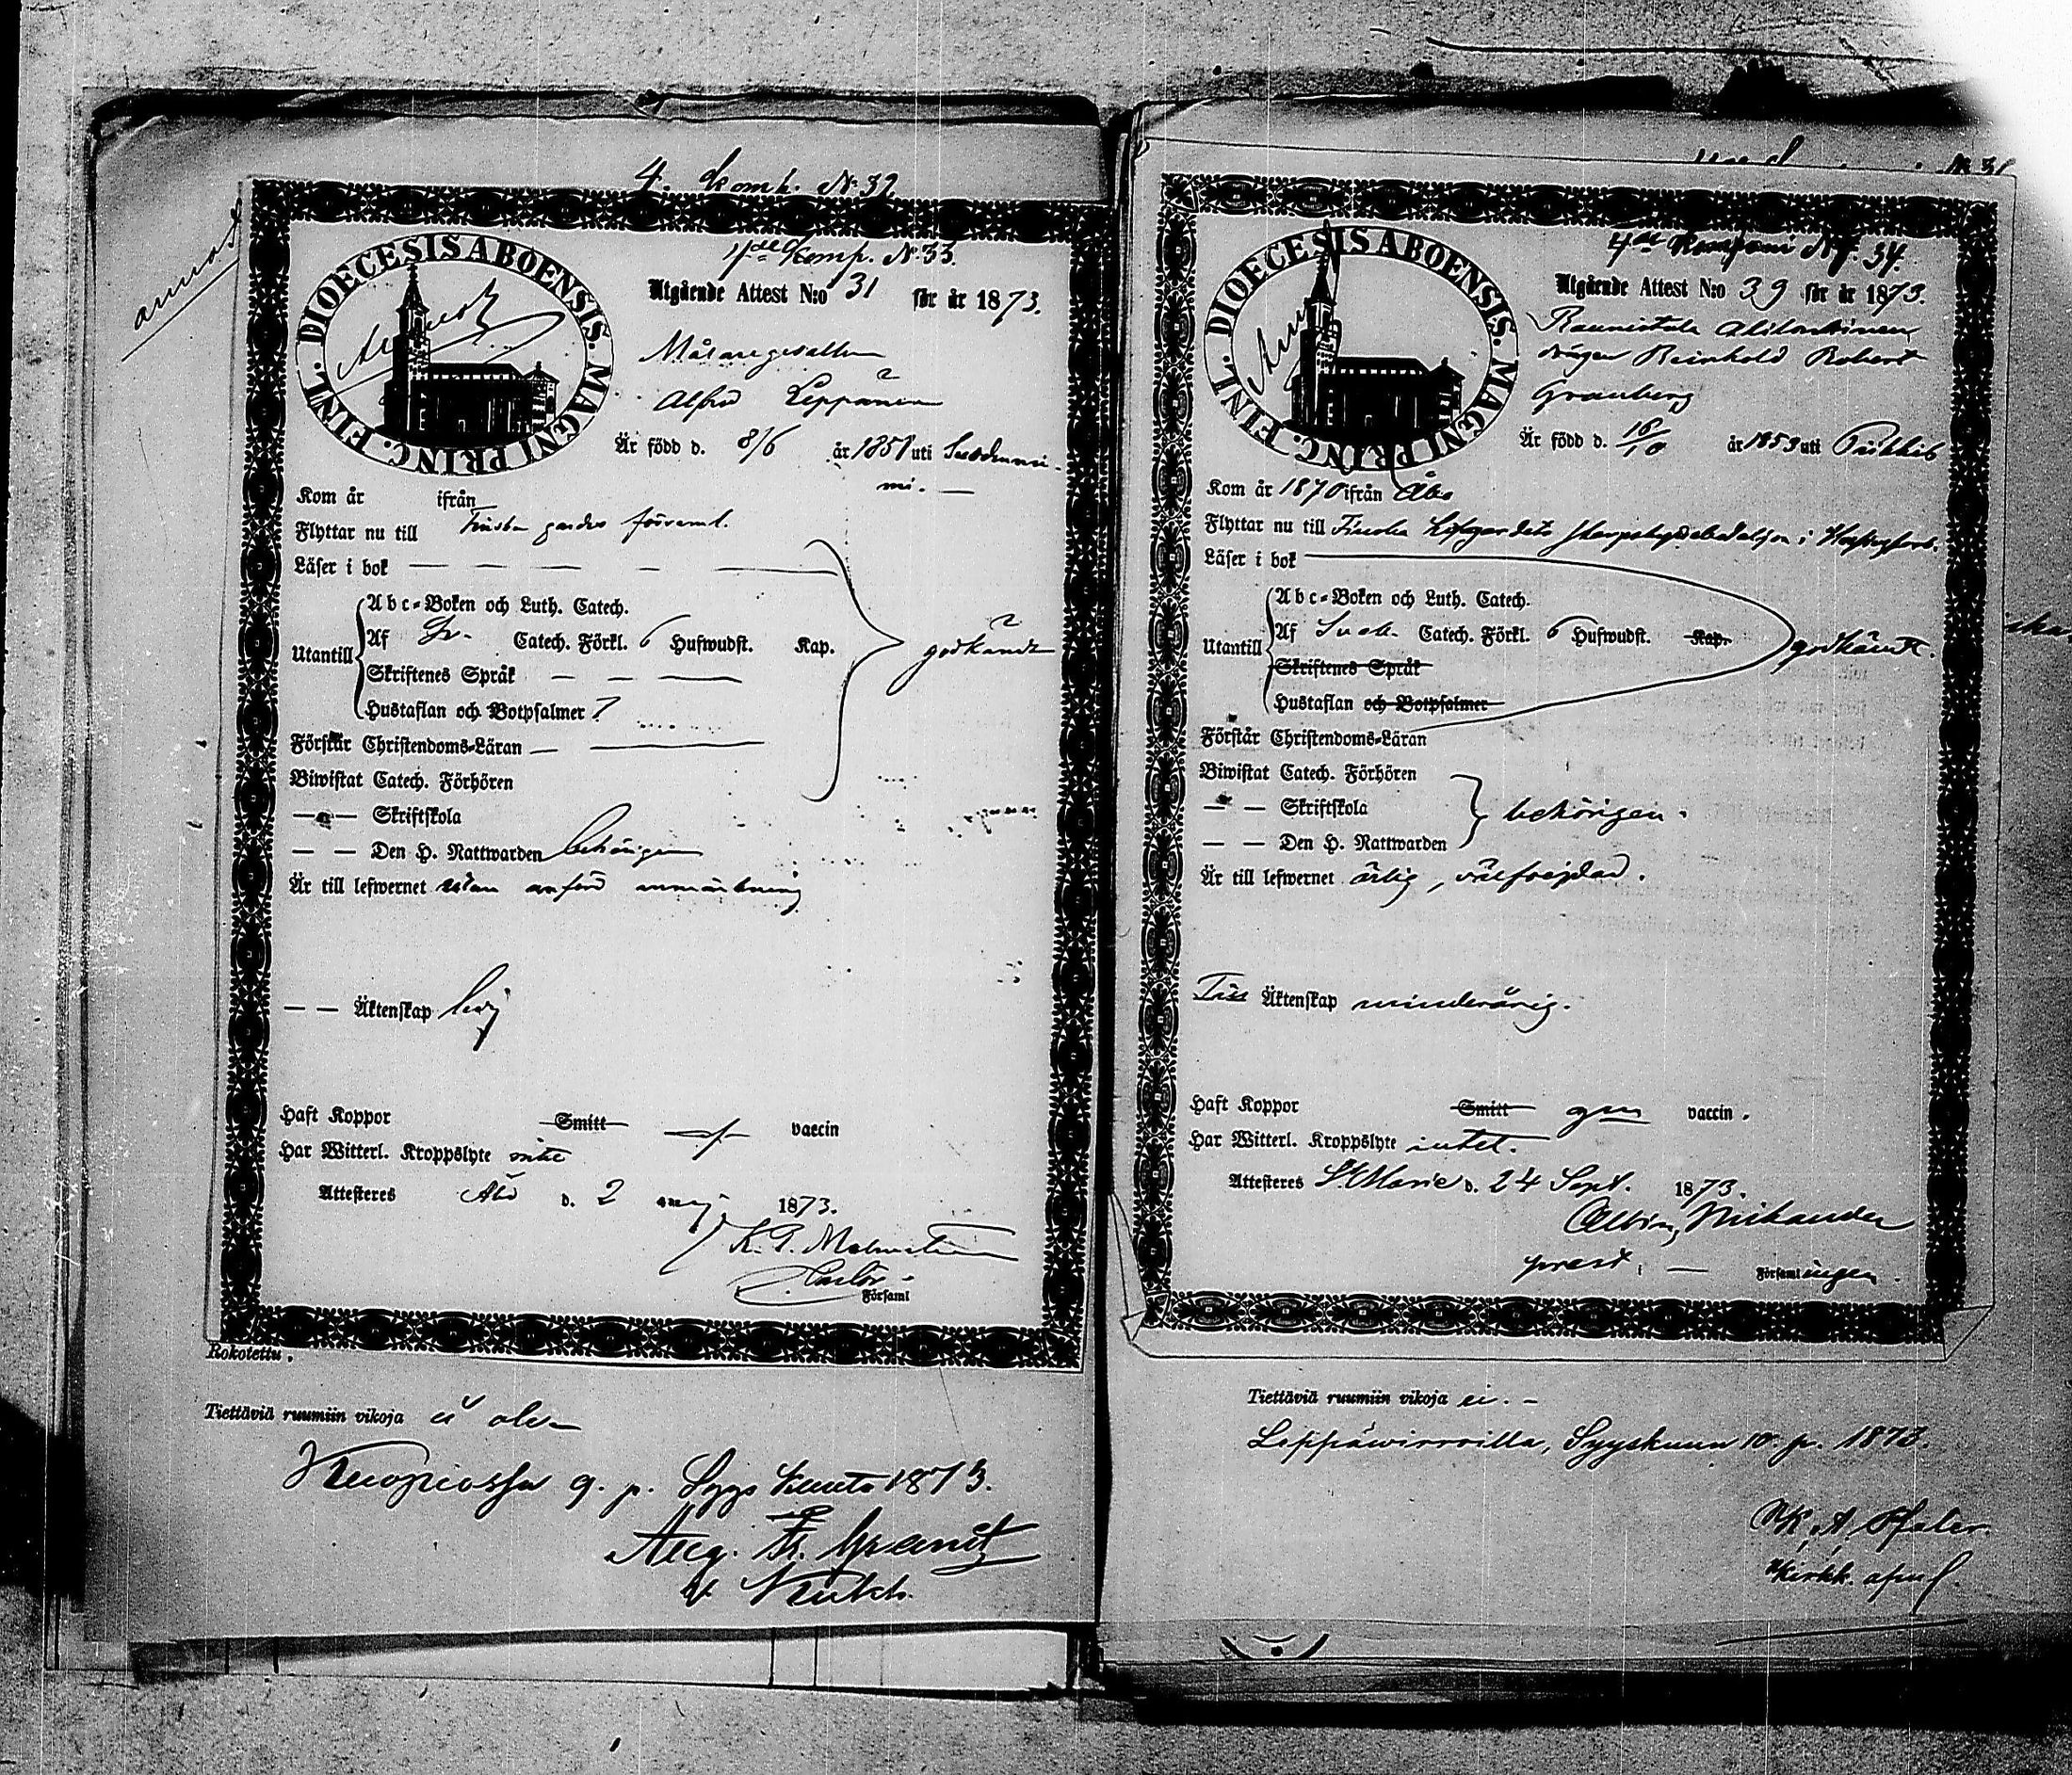 4. Komp. No 32
4de Komp. No 33.
DIOECESIS ABOENSIS. MAGNI PRINC. FINL.
Utgående Attest N:o 31 för år 1873.
Målaregesällen
Alfred Leppänen
Är född d. 8/6 år 1851 uti Suodenni-
mi. —
Kom år ifrån
Flyttar nu till Finska gardes församl.
Läser i bok — — — — —
Utantill
Abc-Boken och Luth. Catech.
Af Sv. Catech. Förkl. 6 Hufwudst. Kap.
godkändt
Skriftenes Språk — — —
Hustaflan och Botpsalmer 7
Förstår Christendoms-Läran — —
Biwistat Catech. Förhören
— — Skriftskola
— — Den H. Nattwarden behörigen
Är till lefwernet utan anförd anmärkning
— — Äktenskap ledig
Haft Koppor Smitt vaccin
Har Witterl. Kroppslyte inte
Attesteres Åbo d. 2 maj 1873.
K. G. Malmström
Pastor
Församl
Rokotettu.
Tiettäviä ruumiin vikoja ei ole
Kuopiossa 9. p. Syys Kuuta 1873.
Aug. Fr. Granit
v. Kirkkh.
4de Kompani No 34.
DIOECESIS ABOENSIS. MAGNI PRINC. FINL.
Utgående Attest N:o 39 för år 1873.
Raunistula
drägen Reinhold Robert
Granberg
Är född d. 16/10 år 1853 uti Pikkis
Kom år 1870 ifrån Åbo
Flyttar nu till Finska Lifgardets Skarpskyttebataljon i Helsingfors.
Läser i bok
Utantill
Abc-Boken och Luth. Catech.
Af Sveb. Catech. Förkl. 6 Hufwudst. Kap.
godkändt.
Skriftenes Språk
Hustaflan och Botpsalmer
Förstår Christendoms-Läran
Biwistat Catech. Förhören
— — Skriftskola
behörigen.
— — Den H. Nattwarden
Är till lefwernet ärlig, välfrejdad.
Till Äktenskap minderårig.
Haft Koppor Smitt gm vaccin.
Har Witterl. Kroppslyte intet.
Attesteres St Marie d. 24 Sept. 1873.
Albin Mikander
prest i — Församlingen.
Tiettäviä ruumiin vikoja ei. —
Leppäwirroilla, Syyskuun 10. p. 1873.
Kirkk. apul.